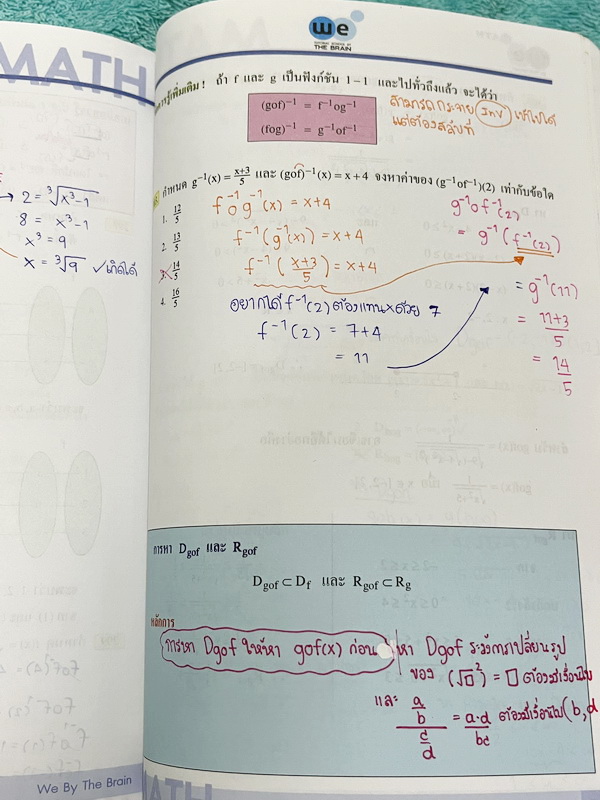 MATH
we
THE BRAIN
ถ้า f และ g เป็นฟังก์ชัน 1-1 และไปทั่วถึงแล้ว จะได้ว่า
(gof)⁻¹ = f⁻¹og⁻¹
(fog)⁻¹ = g⁻¹of⁻¹
สามารถกระจาย Inv เข้าไปได้
แต่ต้องสลับที่
กำหนด g⁻¹(x) = (x+3)/5 และ (gof)⁻¹(x) = x + 4 จงหาค่าของ (g⁻¹of⁻¹)(2) เท่ากับข้อใด
1. 12/5
2. 13/5
3. 14/5
4. 16/5
f⁻¹og⁻¹(x) = x+4
f⁻¹(g⁻¹(x)) = x+4
f⁻¹((x+3)/5) = x+4
อยากได้ f⁻¹(2) ต้องแทน x ด้วย 7
f⁻¹(2) = 7+4
= 11
g⁻¹of⁻¹(2)
= g⁻¹(f⁻¹(2))
= g⁻¹(11)
= (11+3)/5
= 14/5
2 = ∛(x³-1)
8 = x³-1
x³ = 9
x = ∛9 ✓เกิดได้
การหา Dgof และ Rgof
Dgof ⊂ Df และ Rgof ⊂ Rg
หลักการ
การหา Dgof ให้หา gof(x) ก่อน
หา Dgof ระวังการเปลี่ยนรูป
ของ (√□)² = □ ต้องมีเงื่อนไข
และ (a/b)/(c/d) = a·d/bc ต้องมีเงื่อนไข (b, d
We By The Brain